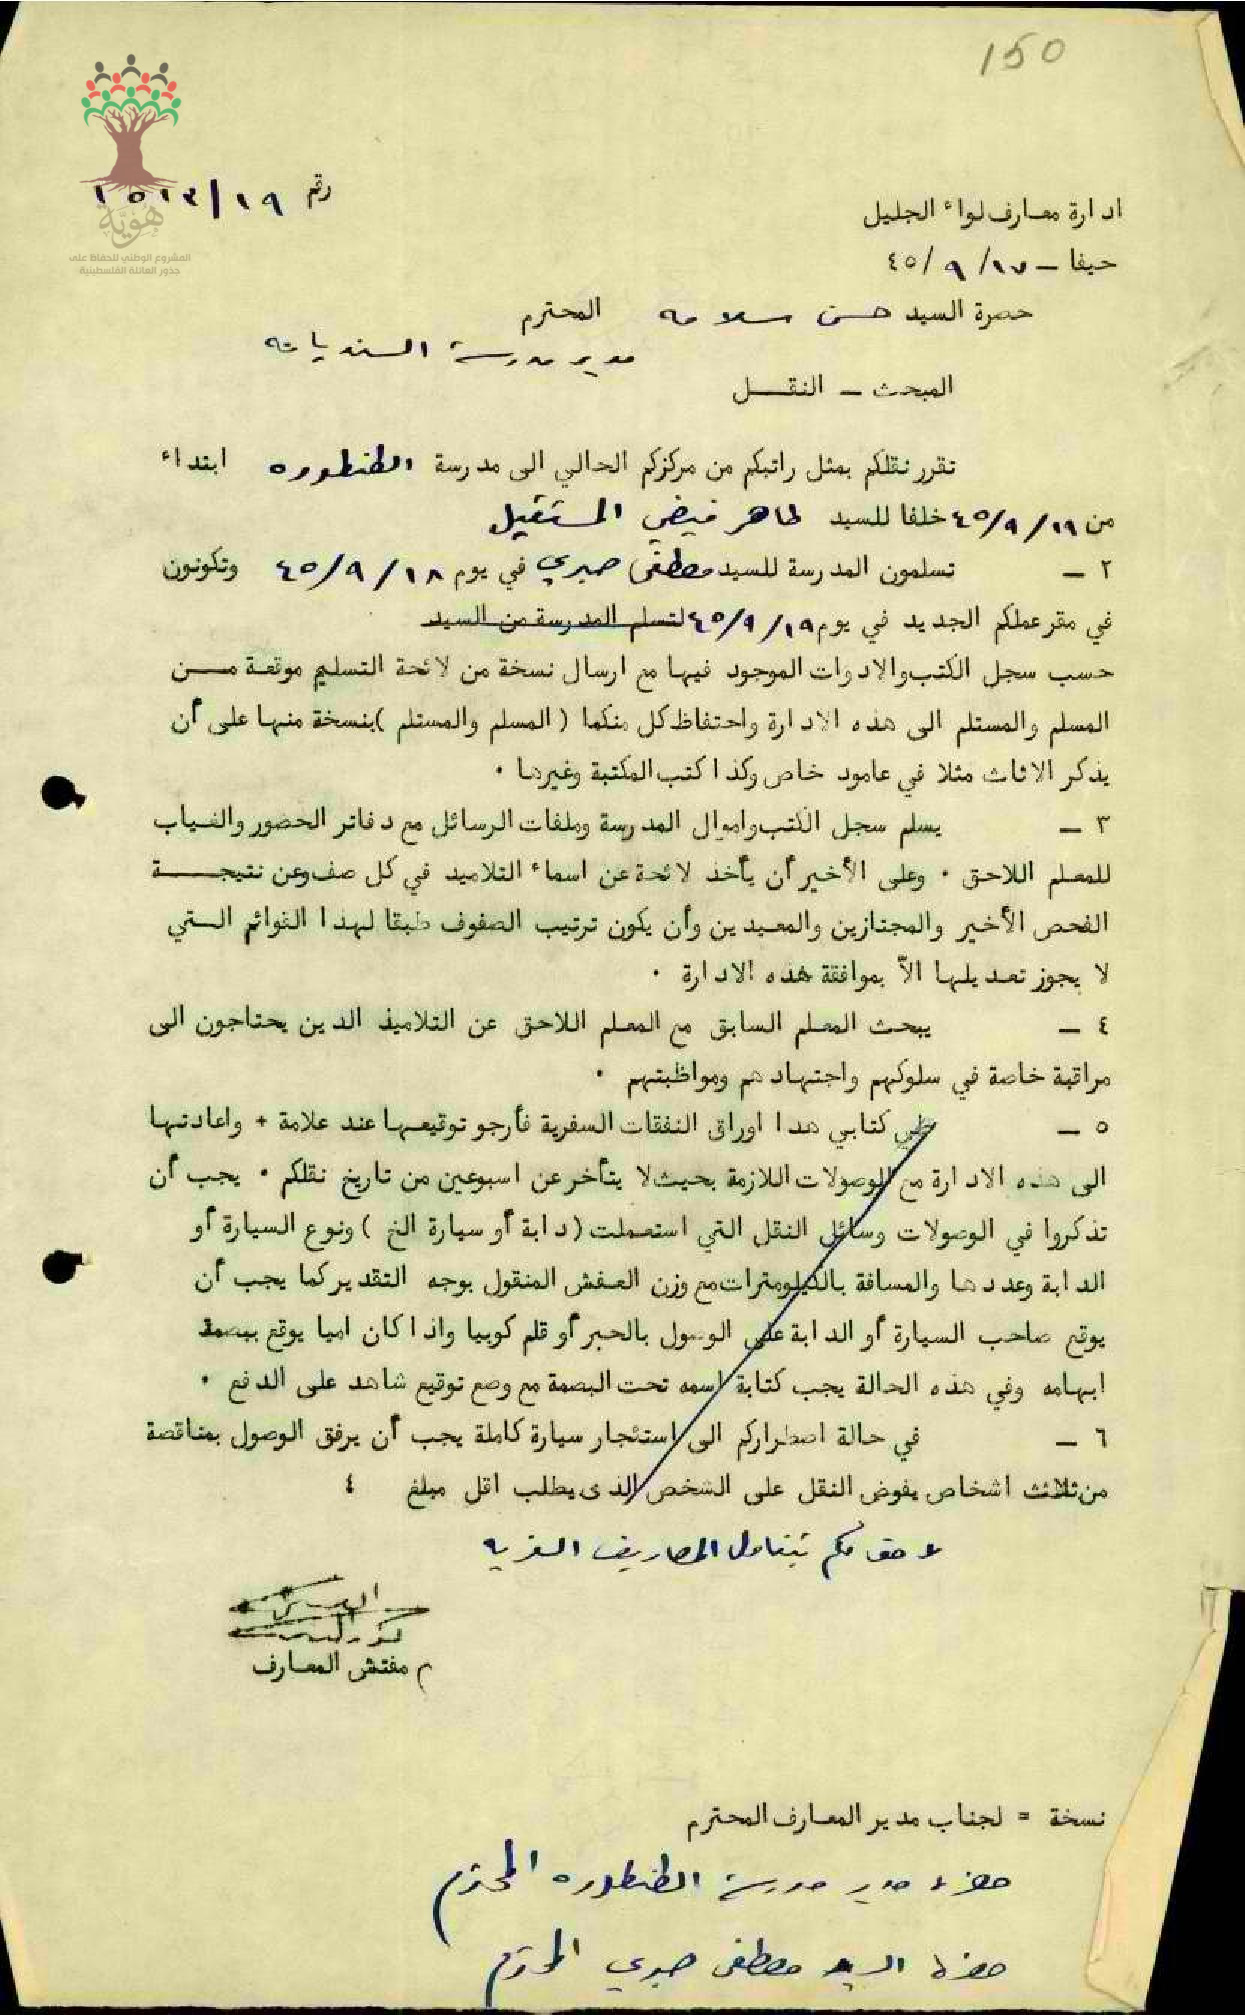 150
هُوِيَّة
المشروع الوطني للحفاظ على
جذور العائلة الفلسطينية
رقم ١٥١٣/١٩
ادارة معارف لواء الجليل
حيفا – ١٧/ ٩ /٤٥
حضرة السيد حسن سلامه المحترم
مدير مدرسة السنديانه
المبحث – النقــل
تقرر نقلكم بمثل راتبكم من مركزكم الحالي الى مدرسة الطنطوره ابتداء
من ١٩/ ٩ /٤٥ خلفا للسيد طاهر فيضي المستقيل
٢ – تسلمون المدرسة للسيد مصطفى صبري في يوم ١٨/ ٩ /٤٥ وتكونون
في مقر عملكم الجديد في يوم ١٩/ ٩ /٤٥ لتسلم المدرسة من السيد
حسب سجل الكتب والادوات الموجود فيها مع ارسال نسخة من لائحة التسليم موقعة مــن
المسلم والمستلم الى هذه الادارة واحتفاظ كل منكما ( المسلم والمستلم ) بنسخة منها على أن
يذكر الاثاث مثلا في عامود خاص وكذا كتب المكتبة وغيرها ٠
٣ – يسلم سجل الكتب واموال المدرسة وملفات الرسائل مع دفاتر الحضور والغياب
للمعلم اللاحق ٠ وعلى الأخير أن يأخذ لائحة عن اسماء التلاميد في كل صف وعن نتيجــة
الفحص الأخير والمجتازين والمعيدين وأن يكون ترتيب الصفوف طبقا لهدا القوائم الـتي
لا يجوز تعديلها الاّ بموافقة هذه الادارة ٠
٤ – يبحث المعلم السابق مع المعلم اللاحق عن التلاميذ الدين يحتاجون الى
مراقبة خاصة في سلوكهم واجتهادهم ومواظبتهم ٠
٥ – طي كتابي هدا اوراق النفقات السفرية فأرجو توقيعها عند علامة + واعادتها
الى هذه الادارة مع الوصولات اللازمة بحيث لا يتأخر عن اسبوعين من تاريخ نقلكم ٠ يجب أن
تذكروا في الوصولات وسائل النقل التي استعملت ( دابة أو سيارة الخ ) ونوع السيارة أو
الدابة وعددها والمسافة بالكيلومترات مع وزن العفش المنقول بوجه التقدير كما يجب أن
يوقع صاحب السيارة أو الدابة على الوصول بالحبر أو قلم كوبيا واذا كان اميا يوقع ببصمة
ابهامه وفي هذه الحالة يجب كتابة اسمه تحت البصمة مع وضع توقيع شاهد على الدفع ٠
٦ – في حالة اضطراركم الى استئجار سيارة كاملة يجب أن يرفق الوصول بمناقصة
من ثلاثث اشخاص يفوض النقل على الشخص الذى يطلب اقل مبلغ ٤
لا حق لكم بتناول المصاريف السفريه
م مفتش المعارف
نسخة = لجناب مدير المعارف المحترم
حضرة مدير مدرسة الطنطوره المحترم
حضرة السيد مصطفى صبري المحترم